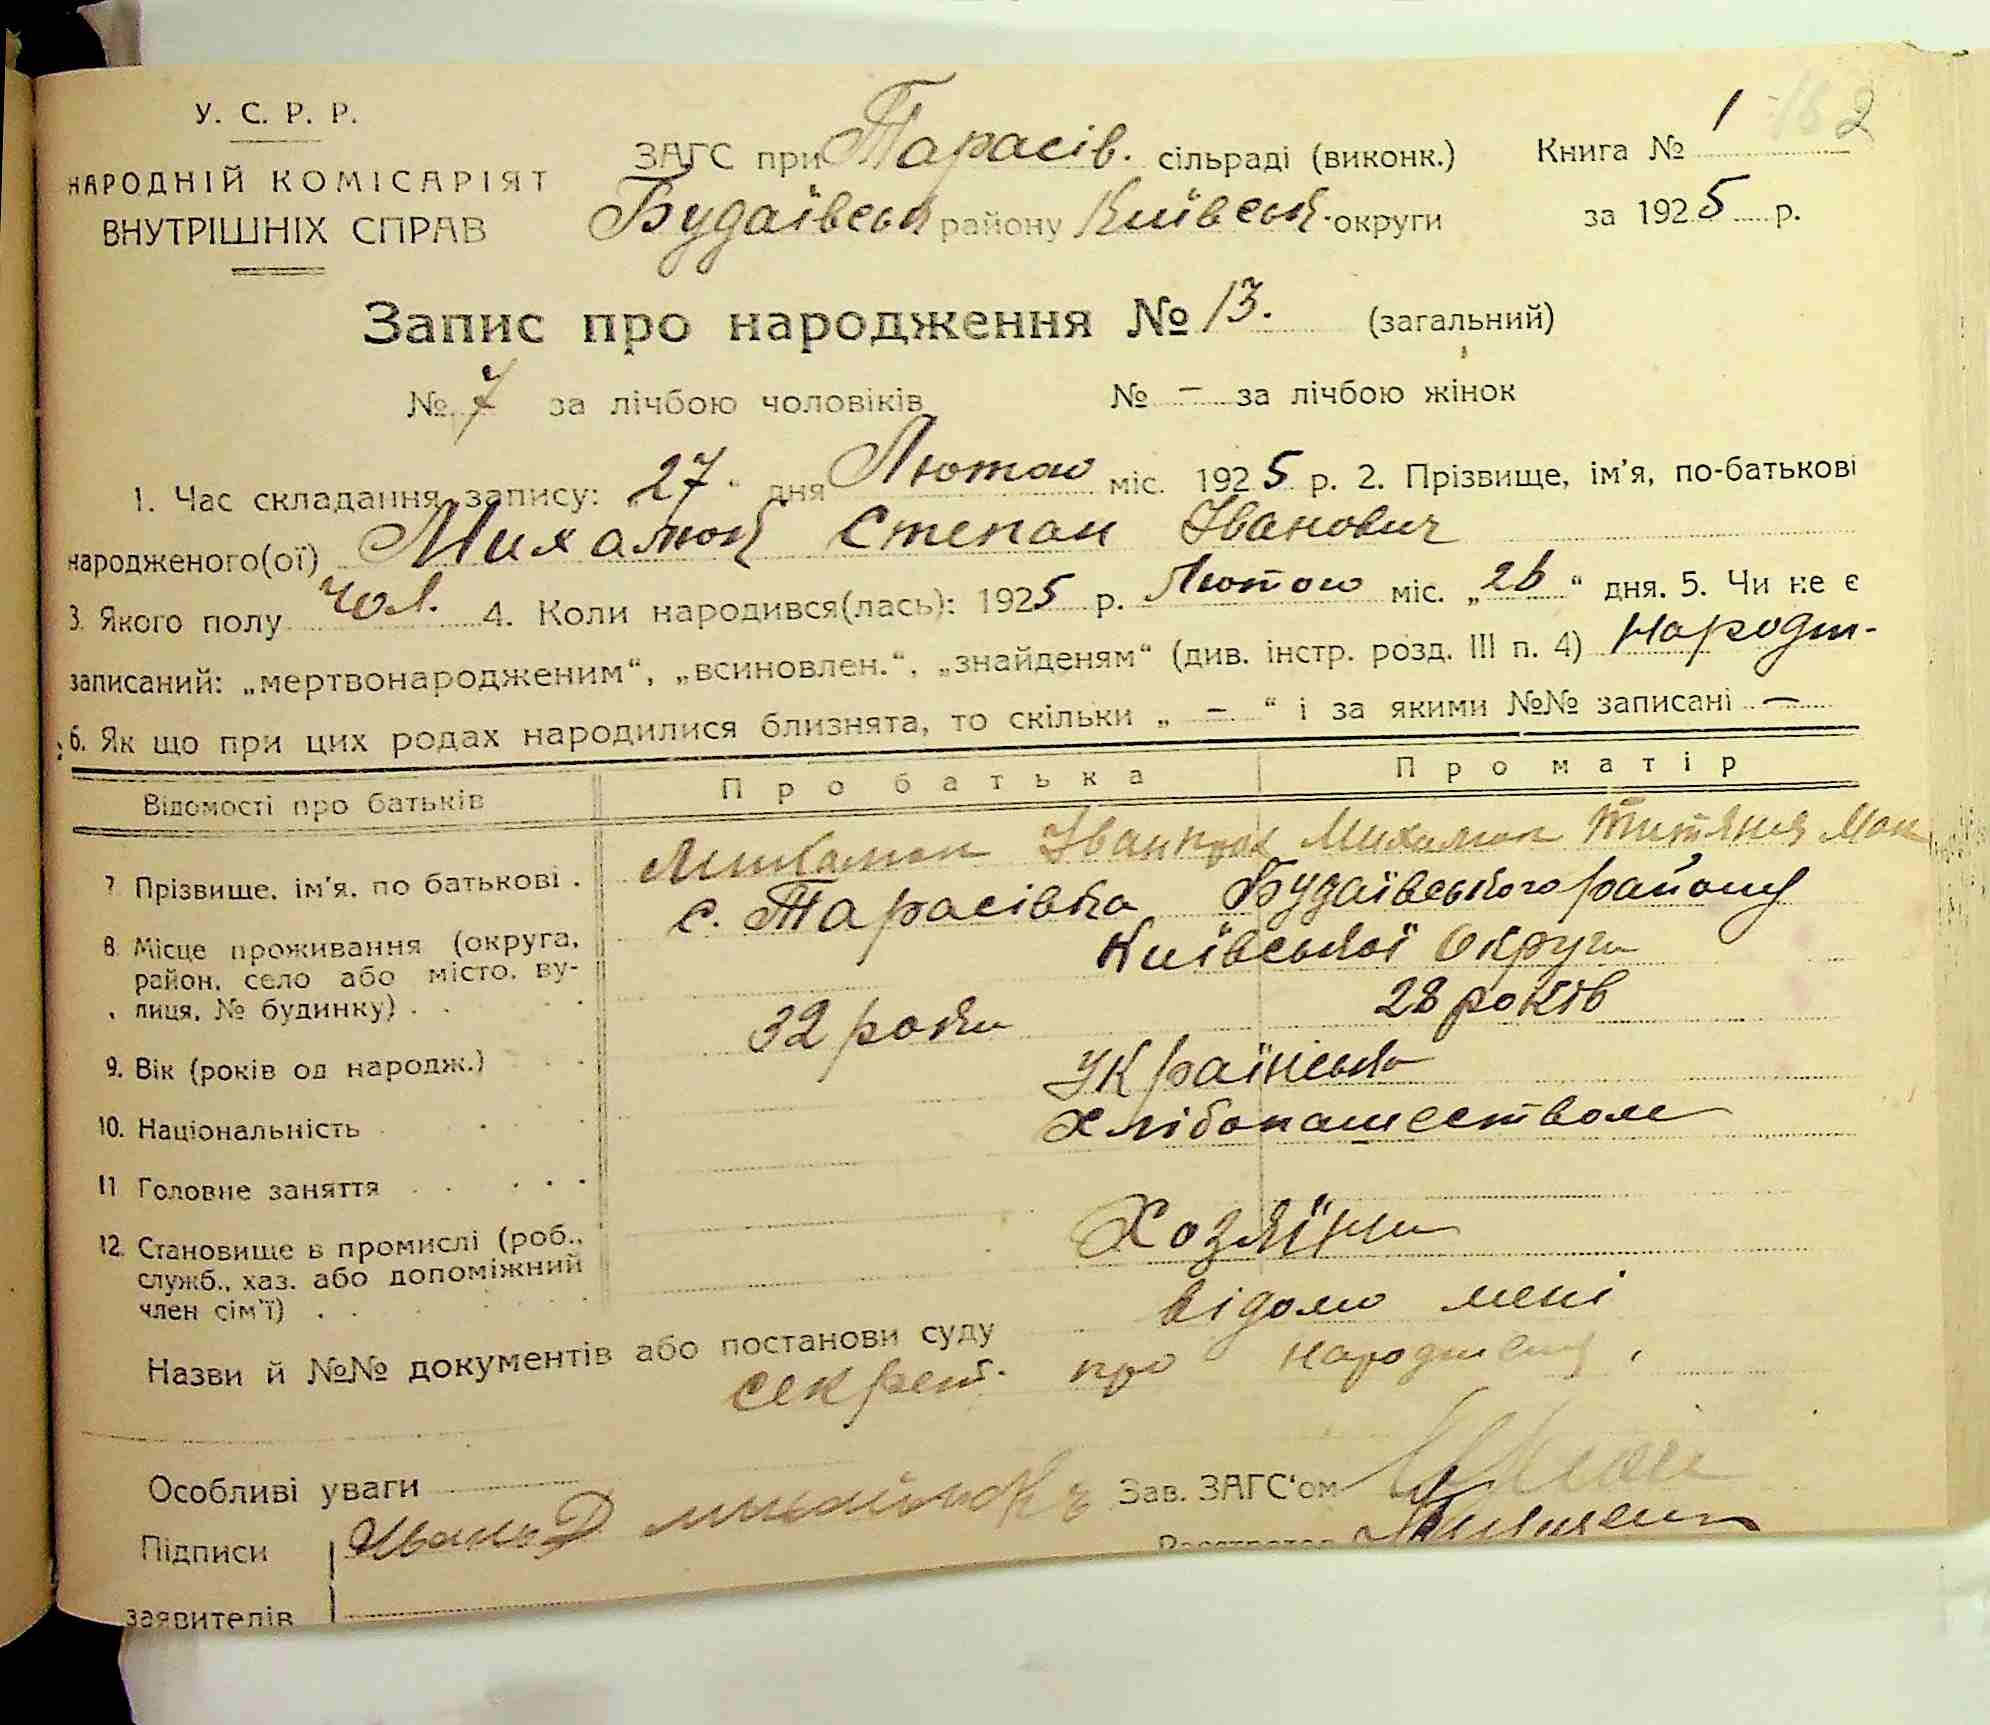 У. С. Р. Р.
НАРОДНІЙ КОМІСАРІЯТ
ВНУТРІШНІХ СПРАВ
ЗАГС при Тарасів. сільраді (виконк.) Книга № 1 2
Будаївськ району Київськ. округи за 1925 р.
Запис про народження № 13. (загальний)
№ 7 за лічбою чоловіків № — за лічбою жінок
1. Час складання запису: „27“ дня Лютого міс. 1925 р. 2. Прізвище, ім'я, по-батькові
народженого(ої) Михалюк Степан Іванович
3. Якого полу чол. 4. Коли народився(лась): 1925 р. Лютого міс. „26“ дня. 5. Чи не є
записаний: „мертвонародженим“, „всиновлен.“, „знайденям“ (див. інстр. розд. III п. 4) Народж-
6. Як що при цих родах народилися близнята, то скільки „ — “ і за якими №№ записані —
Відомості про батьків Про батька Про матір
7. Прізвище, ім'я, по батькові . Михалюк Іван Михалюк Титяния
8. Місце проживання (округа, район, село або місто, вулиця, № будинку) . . с. Тарасівка Будаївського району
Київської Округи
9. Вік (років од народж.) 32 роки 28 років
10. Національність Українська
11 Головне заняття Хлібопашеством
12. Становище в промислі (роб., служб., хаз. або допоміжний член сім'ї) . . Хозяїни
Назви й №№ документів або постанови суду відомо мені
секрет. про народження,
Особливі уваги
Зав. ЗАГС'ом
Підписи
заявителів